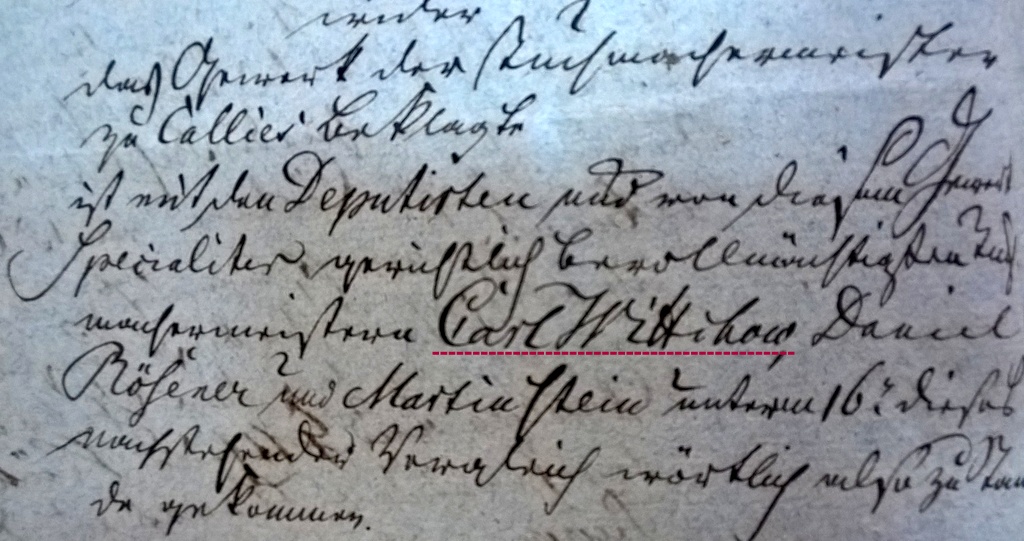 wider
das Gewerk der Tuchmachermeister
zu Callies Beklagte
ist mit den Deputirten und von diesem Gewerk
Specialiter gerichtlich bevollmächtigten Tuch
machermeistern Carl Wittchow Daniel
Rösener und Martin Stein unterm 16t dieses
nachstehender Vergleich wörtlich also zu Stan
de gekommen.